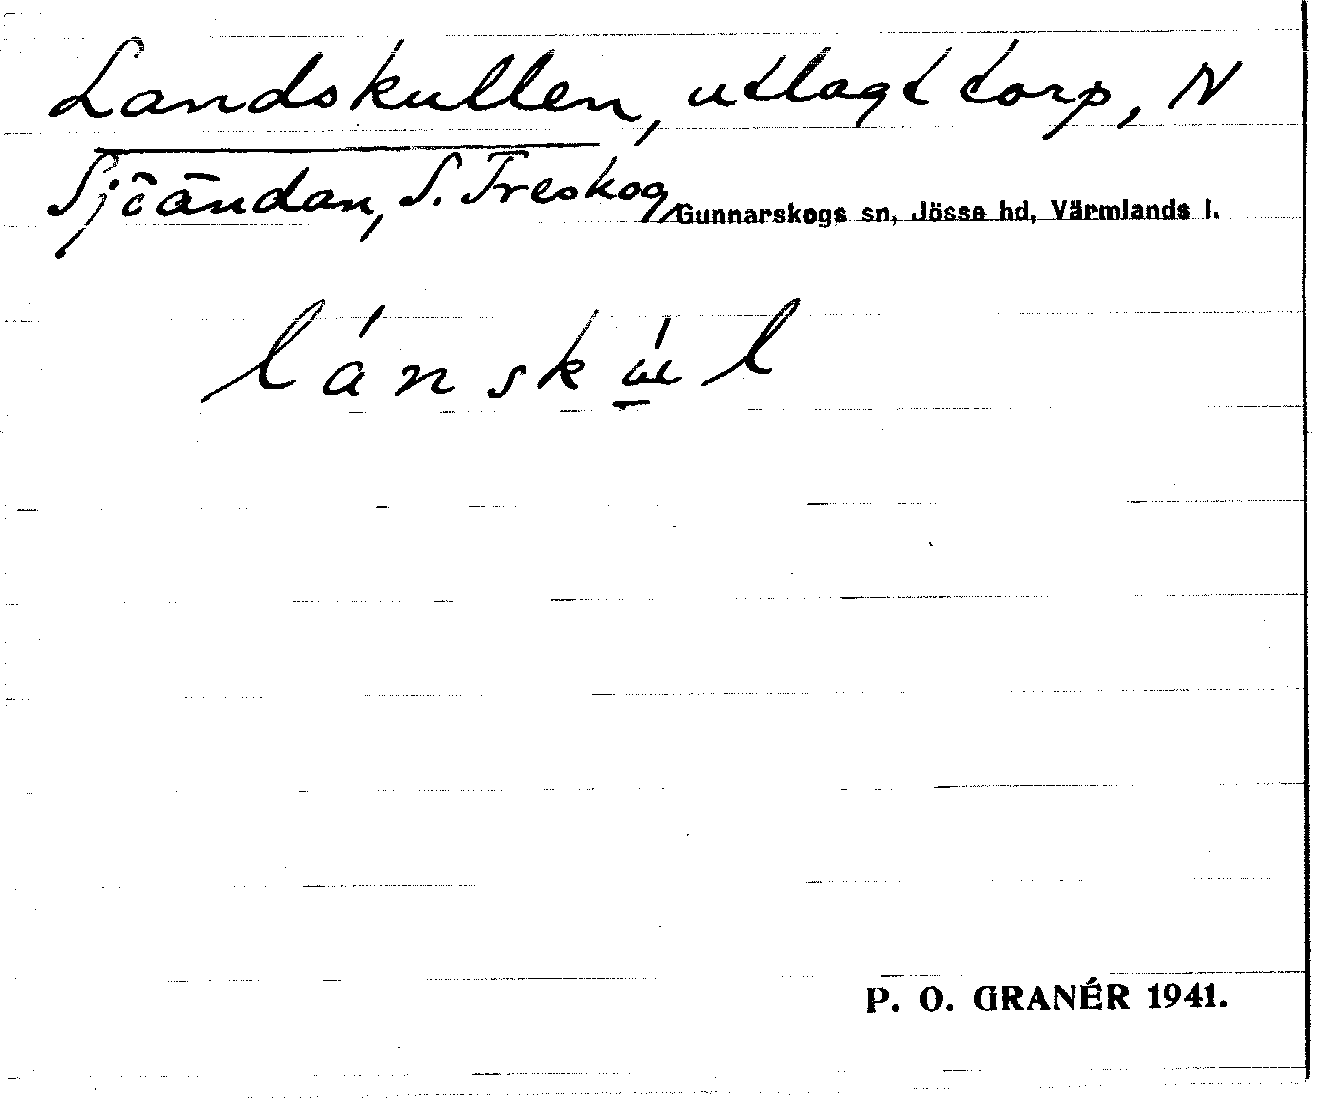 Landskullen, utlagt torp, N
Sjöändan, S. Treskog, Gunnarskogs sn, Jösse hd, Värmlands l.
lánskúl
P. O. GRANÉR 1941.